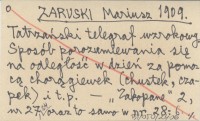 ZARUSKI Mariusz 1909.
Tatrzański telegraf wzrokowy.
Sposób porozumiewania się
na odległość w dzień za pomo-
cą chorągiewek (chustek, cza-
pek) i t.p. — „Zakopane" 2,
nr 27, oraz to samo w nr. 28: